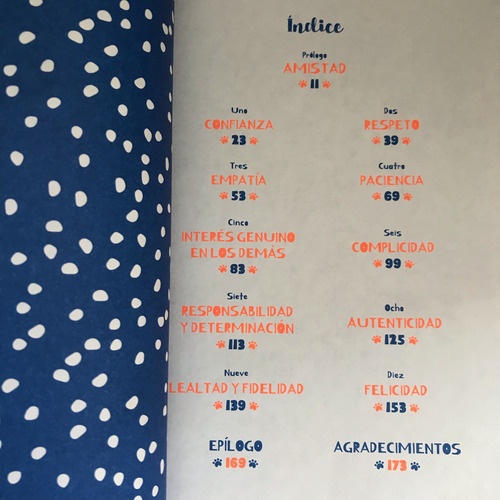 Índice
Prólogo
AMISTAD
11
Uno
CONFIANZA
23
Dos
RESPETO
39
Tres
EMPATÍA
53
Cuatro
PACIENCIA
69
Cinco
INTERÉS GENUINO
EN LOS DEMÁS
83
Seis
COMPLICIDAD
99
Siete
RESPONSABILIDAD
Y DETERMINACIÓN
113
Ocho
AUTENTICIDAD
125
Nueve
LEALTAD Y FIDELIDAD
139
Diez
FELICIDAD
153
EPÍLOGO
169
AGRADECIMIENTOS
173